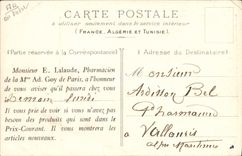 CARTE POSTALE
à utiliser seulement dans le service intérieur
(FRANCE, ALGÉRIE ET TUNISIE)
(Partie réservée à la Correspondance)
(Adresse du Destinataire)
Monsieur E. Lalaude, Pharmacien
de la Mon Ad. Goy de Paris, a l'honneur
de vous aviser qu'il passera chez vous
Demain
Il vous prie de voir si vous n'avez pas
besoin des produits qui sont dans le
Prix-Courant. Il vous montrera les
articles nouveaux.
Monsieur
Ardisson Bel
Pharmacien
Vallauris
Alpes Maritimes